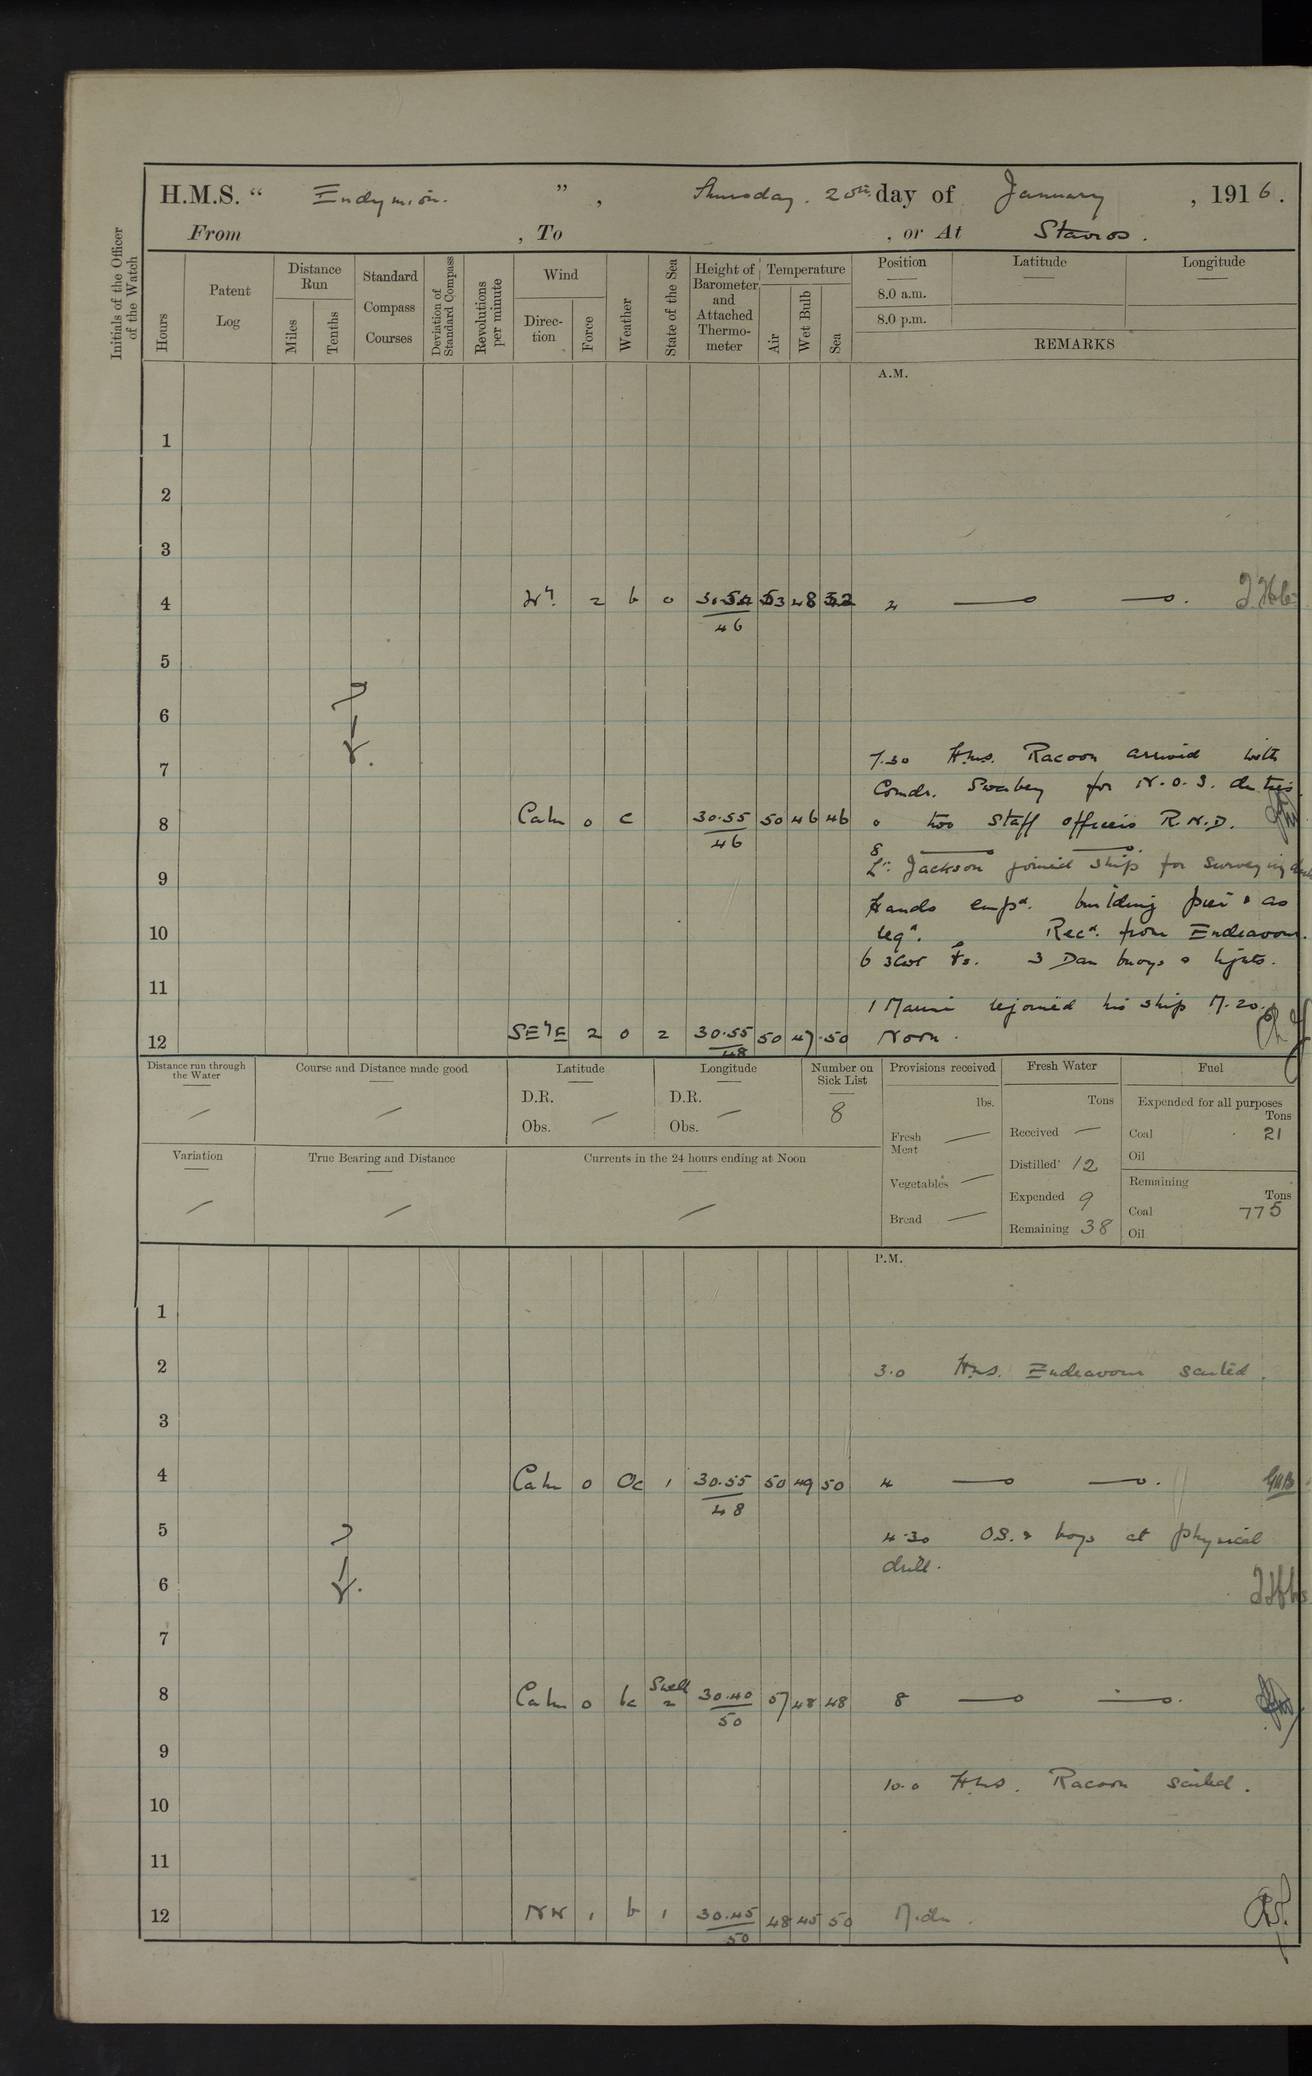 H.M.S. “ Endymion. ” , Thursday. 20th day of January , 1916.
From , To , or At Stavros.
Initials of the Officer of the Watch
Hours
Patent Log
Distance Run
Miles
Tenths
Standard Compass Courses
Deviation of Standard Compass
Revolutions per minute
Wind
Direc-tion
Force
Weather
State of the Sea
Height of Barometer and Attached Thermo-meter
Temperature
Air
Wet Bulb
Sea
Position
8.0 a.m.
8.0 p.m.
Latitude
Longitude
REMARKS
A.M.
1
2
3
4 Wly. 2 b 0 53 48 52 4
46
5
6
7
7.30 H.M.S. Racoon arrived with
Comdr. Swabey for N.O.S. duties
8 Calm 0 c 30.55 50 46 46 & two Staff officers R.N.D.
46
8
9 Lt. Jackson joined ship for surveying
Hands empd. building pier & as
10 reqd. Recd. from Endeavour.
6 3cwt 3 Dan buoys & lights.
11
1 Marine rejoined his ship M.20.
12 SE'E 2 0 2 30.55 50 47 50 Noon.
48
Distance run through the Water
Course and Distance made good
Latitude
D.R.
Obs.
Longitude
D.R.
Obs.
Number on Sick List
8
Provisions received
lbs.
Fresh Meat
Vegetables
Bread
Fresh Water
Tons
Received
Distilled 12
Expended 9
Remaining 38
Fuel
Expended for all purposes
Tons
Coal 21
Oil
Remaining
Tons
Coal 775
Oil
Variation
True Bearing and Distance
Currents in the 24 hours ending at Noon
P.M.
1
2 3.0 H.M.S. Endeavour sailed.
3
4 Calm 0 Oc 1 30.55 50 49 50 4
48
5 4.30 OS. & boys at physical
drill.
6
7
8 Calm 0 bc Swell 2 30.40 57 48 48 8
50
9
10.0 H.M.S. Racoon sailed.
10
11
12 NW 1 b 1 30.45 48 45 50 Mdn.
50